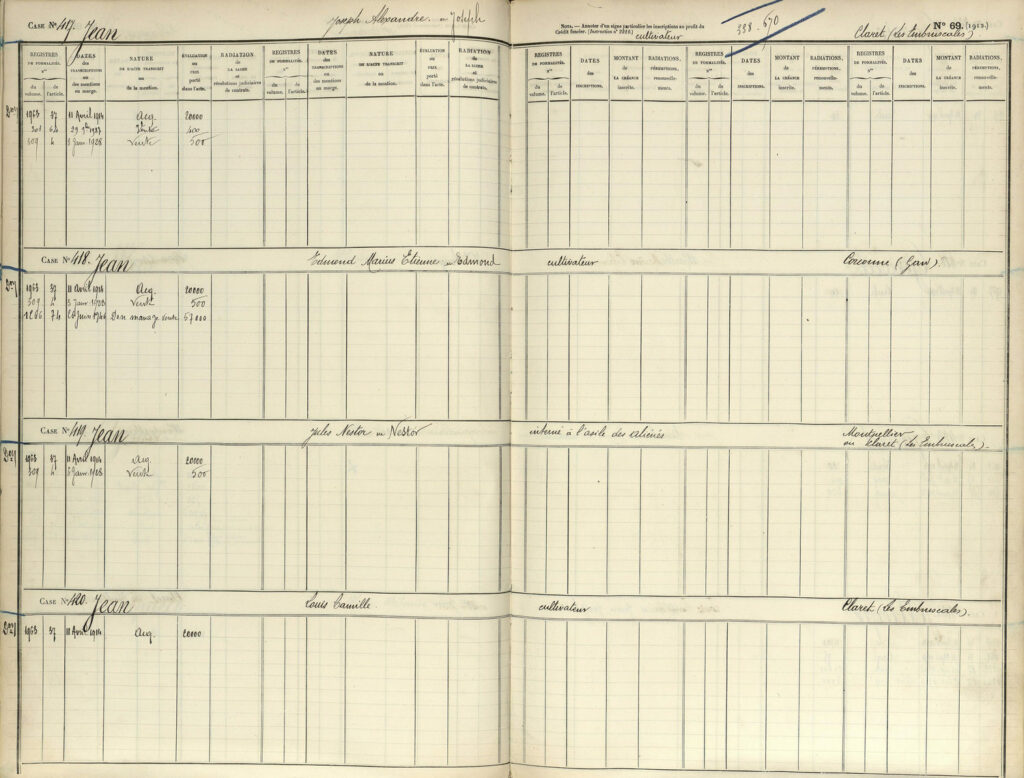 CASE N° 417. Jean Joseph Alexandre ou Joseph
NOTA. — Annoter d'un signe particulier les inscriptions au profit du
Crédit foncier. (Instruction n° 2310.)
cultivateur
338 - 670
N° 69. (1912.)
Claret (Les Embruscales)
REGISTRES DE FORMALITÉS. N°s du volume. de l'article.
DATES DES TRANSCRIPTIONS ou des mentions en marge.
NATURE DE L'ACTE TRANSCRIT ou de la mention.
ÉVALUATION ou PRIX porté dans l'acte.
RADIATION DE LA SAISIE et résolutions judiciaires de contrats.
REGISTRES DE FORMALITÉS. N°s du volume. de l'article.
DATES DES TRANSCRIPTIONS ou des mentions en marge.
NATURE DE L'ACTE TRANSCRIT ou de la mention.
ÉVALUATION ou PRIX porté dans l'acte.
RADIATION DE LA SAISIE et résolutions judiciaires de contrats.
REGISTRES DE FORMALITÉS. N°s du volume. de l'article.
DATES des INSCRIPTIONS.
MONTANT de LA CRÉANCE inscrite.
RADIATIONS, RÉDUCTIONS, renouvellements.
REGISTRES DE FORMALITÉS. N°s du volume. de l'article.
DATES des INSCRIPTIONS.
MONTANT de LA CRÉANCE inscrite.
RADIATIONS, RÉDUCTIONS, renouvellements.
REGISTRES DE FORMALITÉS. N°s du volume. de l'article.
DATES des INSCRIPTIONS.
MONTANT de LA CRÉANCE inscrite.
RADIATIONS, RÉDUCTIONS, renouvellements.
1963 37 11 Avril 1914 Acq. 20000
301 64 29 1927 Vente 400
309 4 3 Janv. 1928 Vente 500
CASE N° 418. Jean Edmond Marius Etienne ou Edmond cultivateur Corconne (Gard).
1963 37 11 Avril 1914 Acq. 20000
309 4 3 Janv. 1928 Vente 500
1266 74 1946 vente 57000
CASE N° 419 Jean Jules Nestor ou Nestor interné à l'asile des aliénés Montpellier
ou Claret (Les Embruscales).
1963 37 11 Avril 1914 Acq. 20000
309 4 3 Janv. 1928 Vente 500
CASE N° 420. Jean Louis Camille cultivateur Claret (Les Embruscales).
1963 37 11 Avril 1914 Acq. 20000